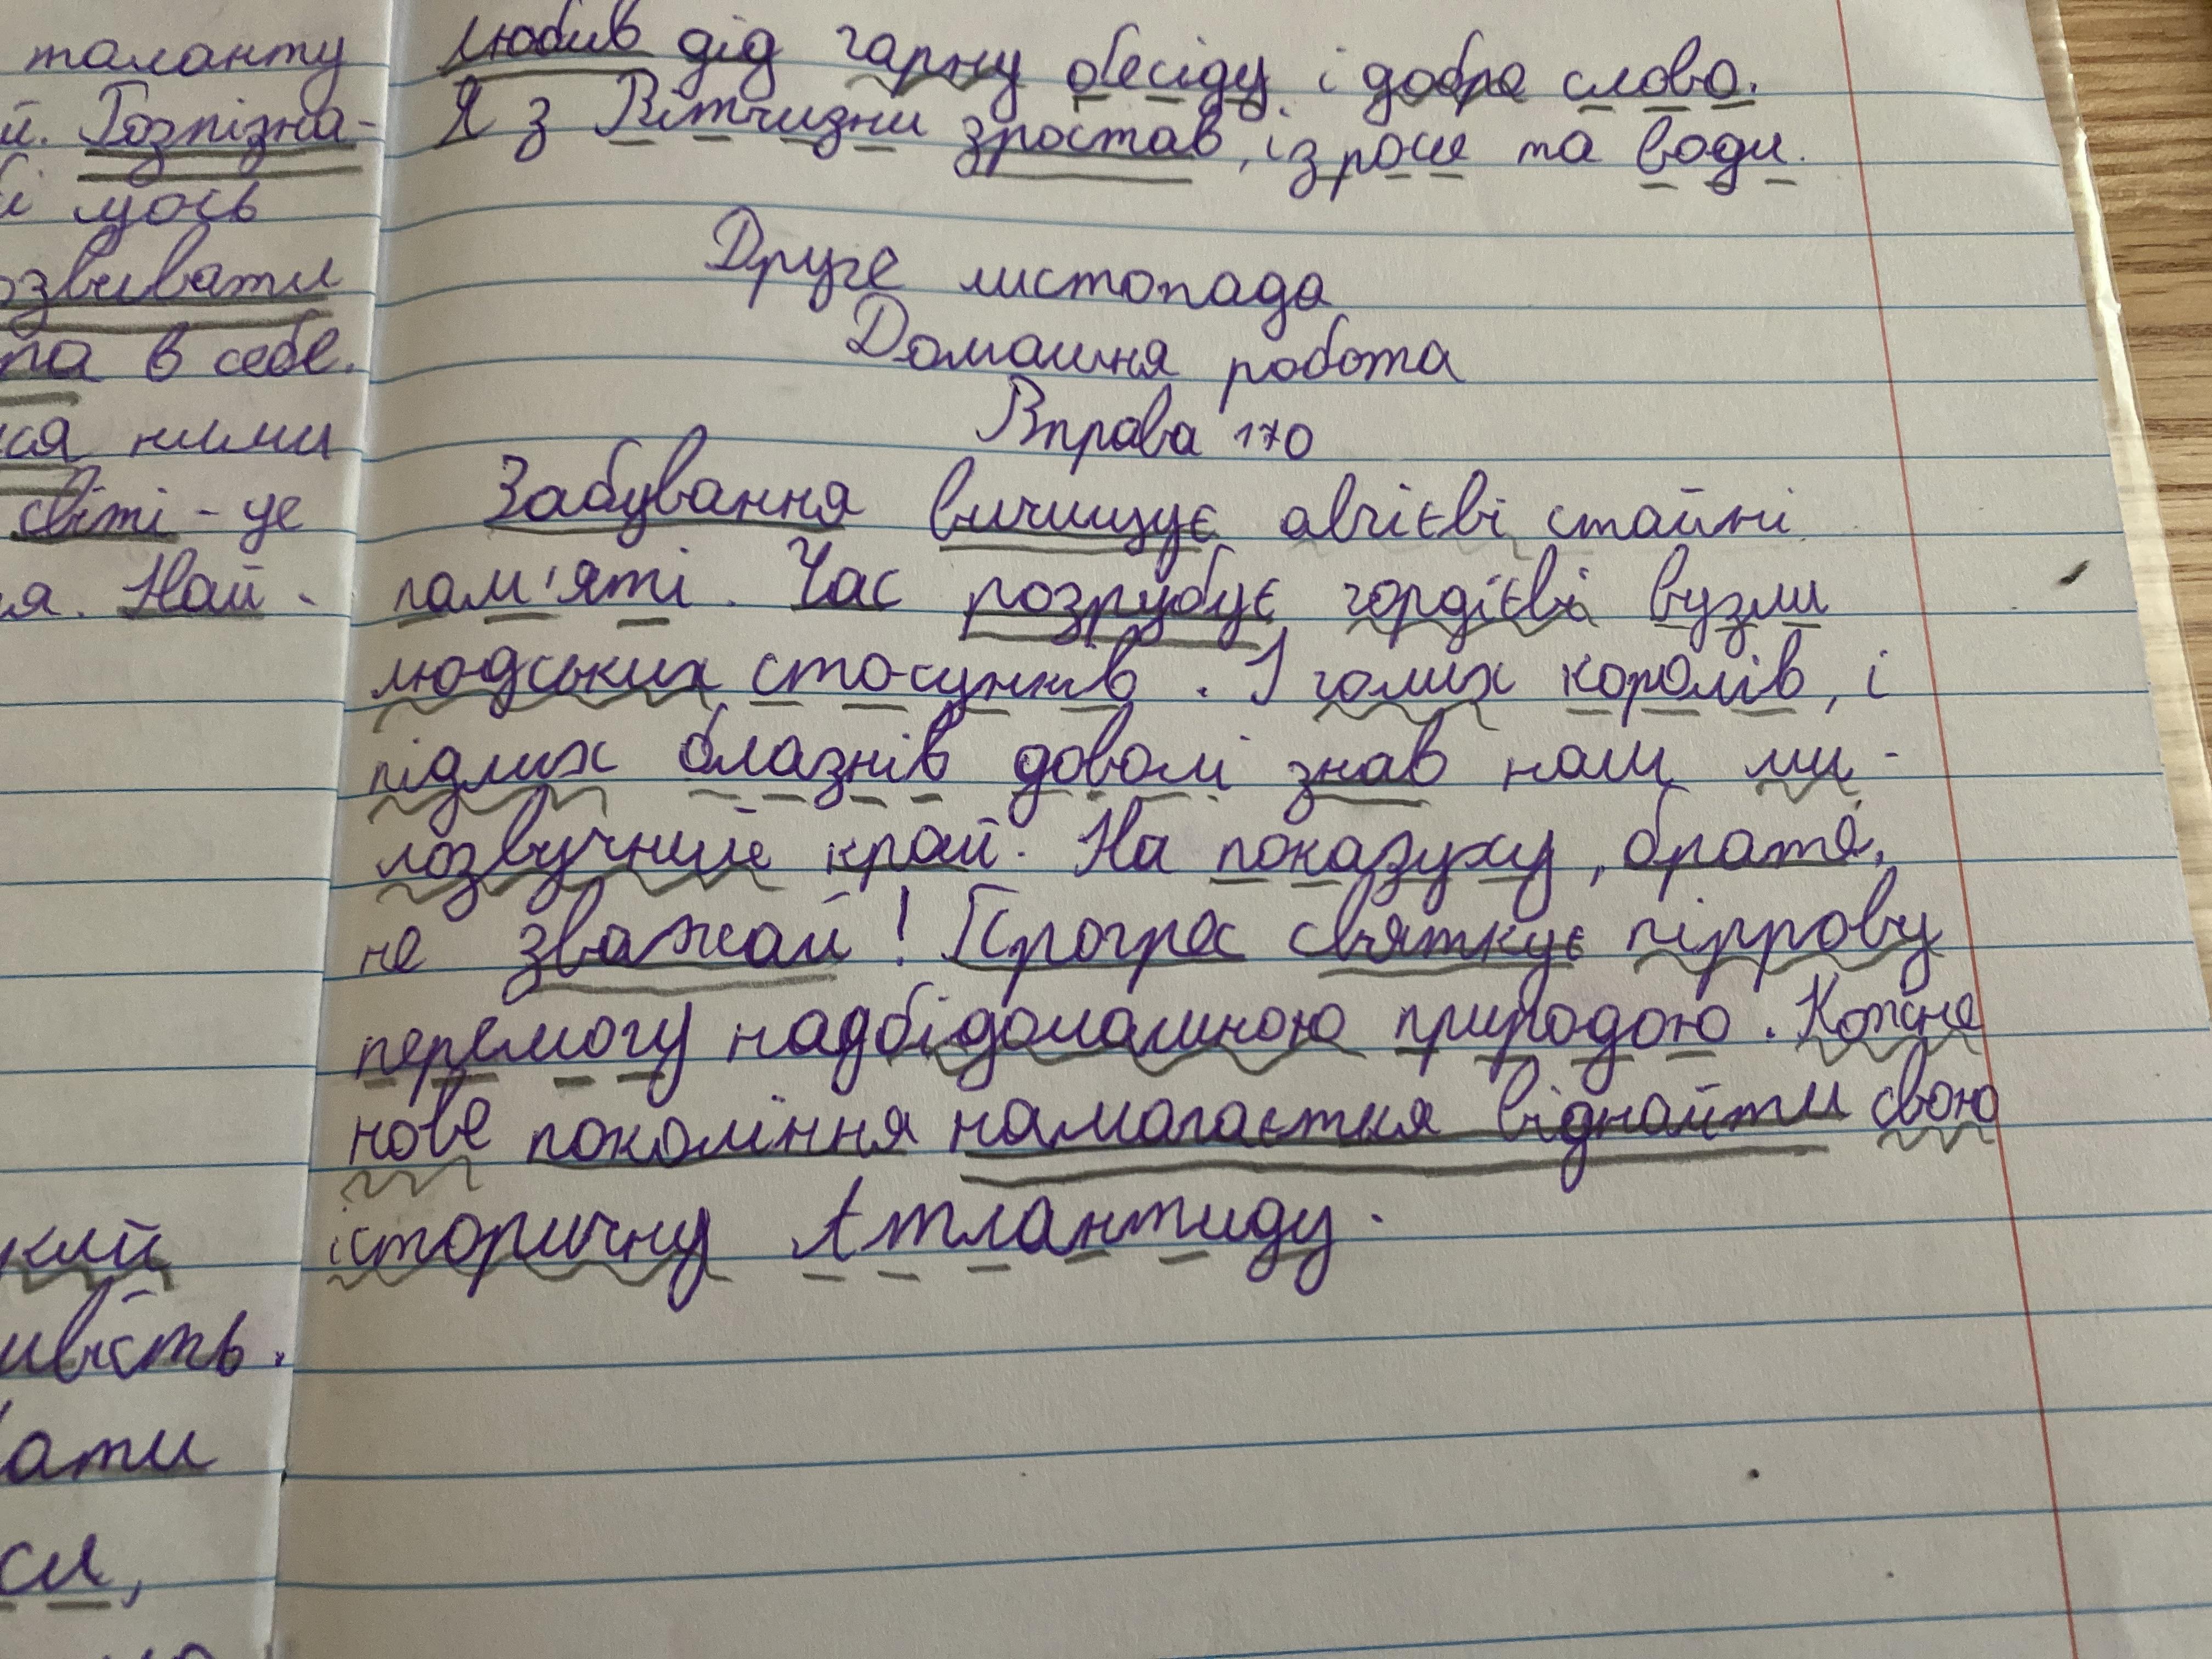 таланту
й. Розпізна-
і щось
озвивати
па в себе.
ся ними
світі - це
ся. Най-
кий
ивість.
вати
си,
любив дід гарну бесіду і добре слово.
Я з Вітчизни зростав, із роси та води.
Друге листопада
Домашня робота
Вправа 170
Забування вичищує авгієві стайні
пам'яті. Час розрубує гордієві вузли
людських стосунків. І голих королів, і
підлих блазнів доволі знав наш ми-
лозвучний край. На показуху, братя,
не зважай! Прогрес святкує піррову
перемогу надбідолашною природою. Кожне
нове покоління намагається віднайти свою
історичну Атлантиду.